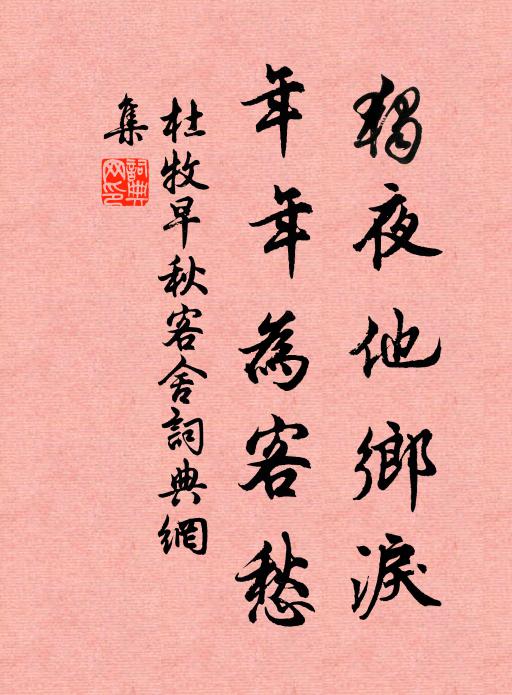 獨夜他鄉淚
年年為客愁
杜牧早秋客舍詞典網
集
詞典网印